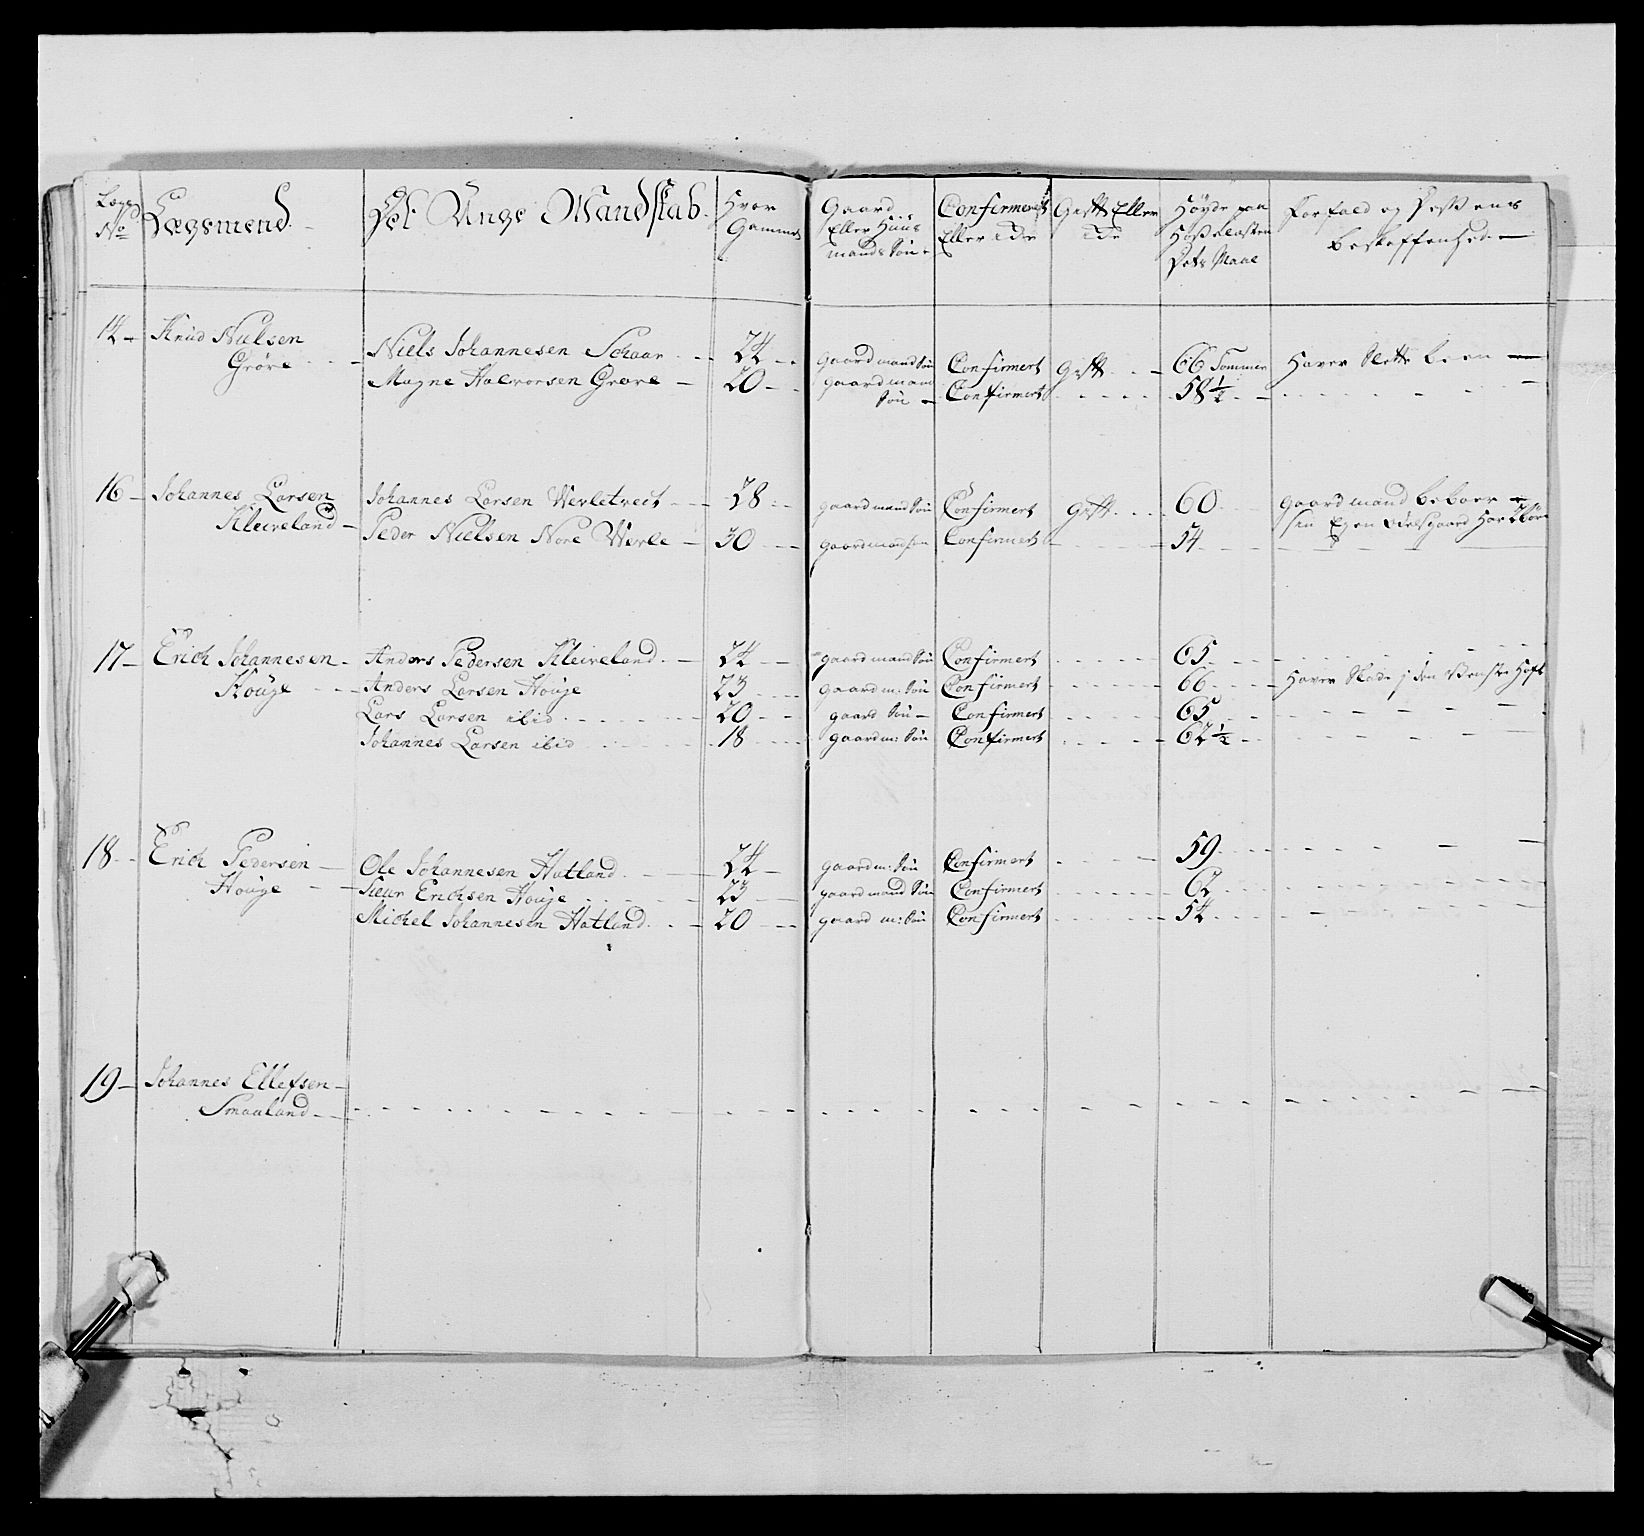 Lægs No Lægsmend Det Unge Mandskab Hvor Gammel Gaard Eller Huus mands Søn Confirmert Eller Ide Gift Eller Ide Høyde paa Hoßelæsten Dets Maal Forfald og beskaffenhed
14 Knud Nielsen Grøre
Niels Johannesen Schaar 24 gaardmand Søn Confirmert Gift 66 Tommer Haver Slette been
Magne Halvorsen Grøre 20 gaardmand Søn Confirmert 58 1/2
16 Johannes Larsen Kleiveland
Johannes Larsen Werletveit 28 gaardmand Søn Confirmert Gift 60 gaardmand beboer sin Egen Odelsgaard Har Børn
Peder Nielsen Nore Werle 30 gaardmansøn Confirmert 54
17 Erich Johannesen Houge
Anders Pedersen Kleiveland 24 gaardmand Søn Confirmert 65
Anders Larsen Houge 23 gaardm: Søn Confirmert 66 Haver Skade j den Venstre Hoft
Lars Larsen ibid 20 gaard Søn Confirmert 65
Johannes Larsen ibid 18 gaardm: Søn Confirmert 62 1/2
18 Erich Pedersen Houge
Ole Johannesen Hatland 24 gaardm: Søn Confirmert 59
Siur Erichsen Houge 23 gaardmand Søn Confirmert 62
Michel Johannesen Hatland 20 gaard m: Søn Confirmert 54
19 Johannes Ellefsen Smaaland